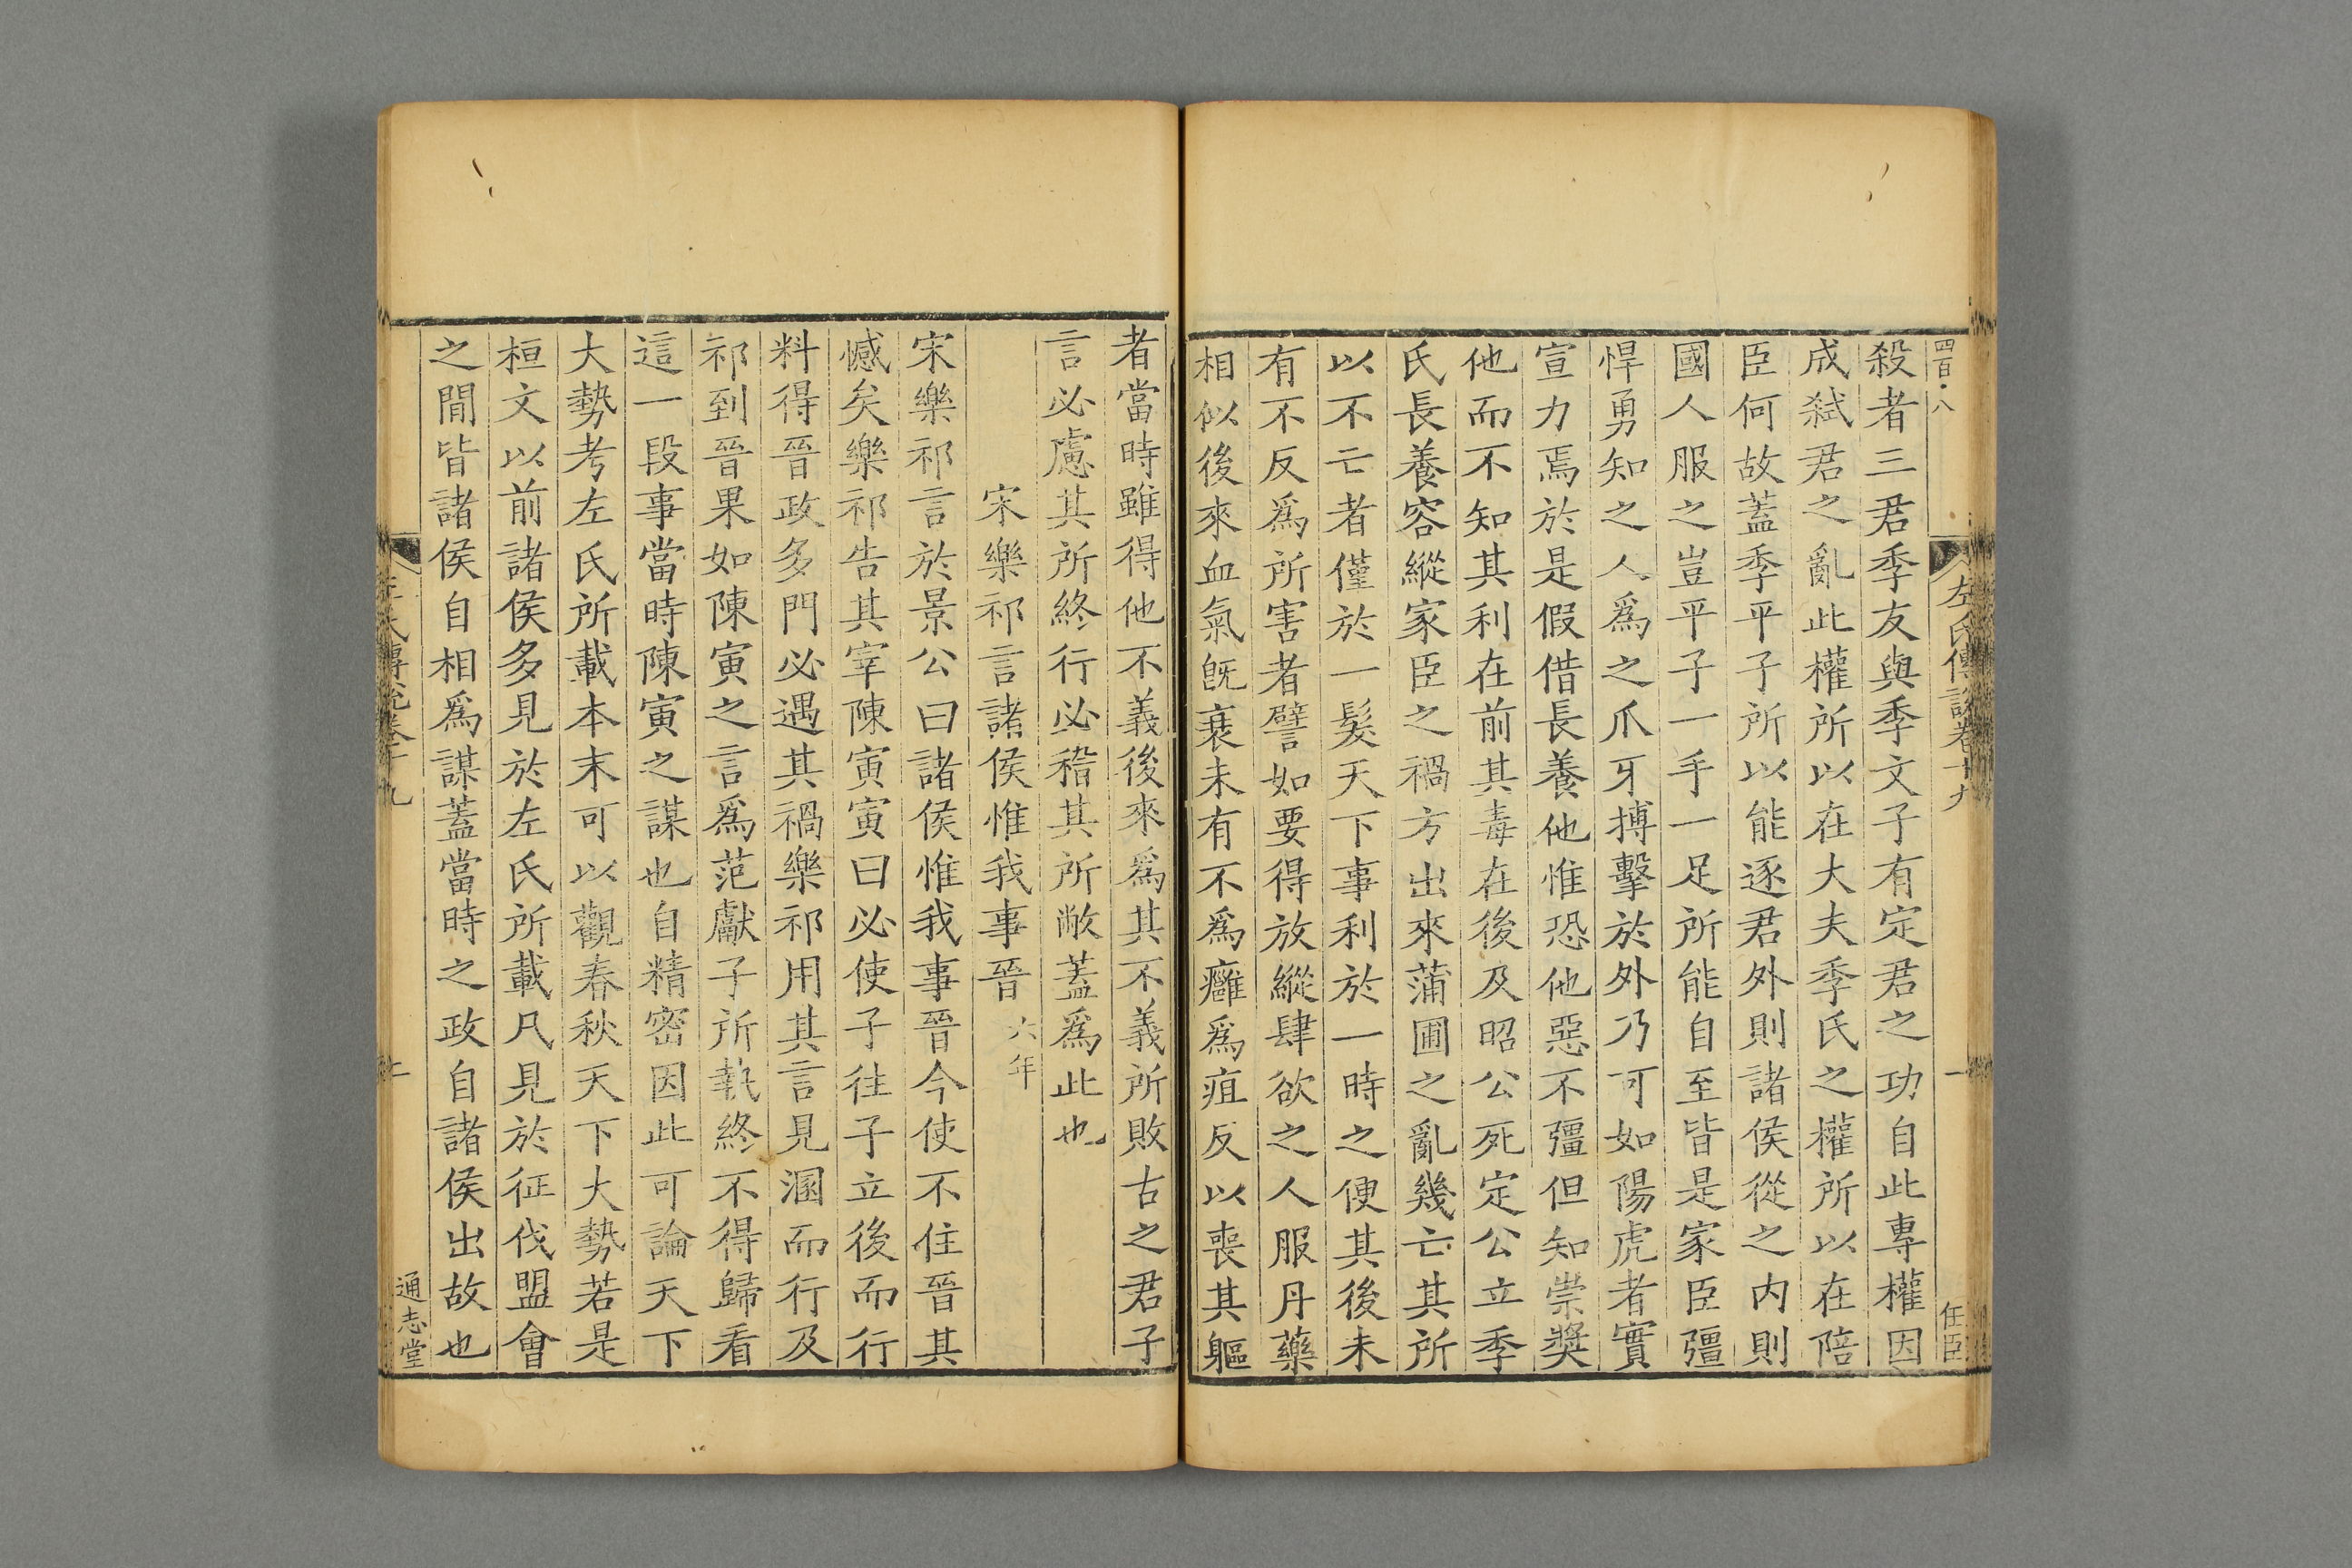 四百八
左氏傳說卷十九
一
任臣
殺者三君季友與季文子有定君之功自此專權因
成弑君之亂此權所以在大夫季氏之權所以在陪
臣何故蓋季平子所以能逐君外則諸侯從之内則
國人服之豈平子一手一足所能自至皆是家臣彊
悍勇知之人爲之爪牙搏擊於外乃可如陽虎者實
宣力焉於是假借長養他惟恐他惡不彊但知崇奬
他而不知其利在前其毒在後及昭公死定公立季
氏長養容縱家臣之禍方出來蒲圃之亂幾亡其所
以不亡者僅於一髮天下事利於一時之便其後未
有不反爲所害者譬如要得放縱肆欲之人服丹藥
相似後來血氣旣衰未有不爲癰爲疽反以喪其軀
者當時雖得他不義後來爲其不義所敗古之君子
言必慮其所終行必稽其所敝蓋爲此也
宋樂祁言諸侯惟我事晉 六年
宋樂祁言於景公曰諸侯惟我事晉今使不住晉其
憾矣樂祁告其宰陳寅寅曰必使子往子立後而行
料得晉政多門必遇其禍樂祁用其言見溷而行及
祁到晉果如陳寅之言爲范獻子所執終不得歸看
這一段事當時陳寅之謀也自精密因此可論天下
大勢考左氏所載本末可以觀春秋天下大勢若是
桓文以前諸侯多見於左氏所載凡見於征伐盟會
之間皆諸侯自相爲謀蓋當時之政自諸侯出故也
左氏傳說卷十九
通志堂